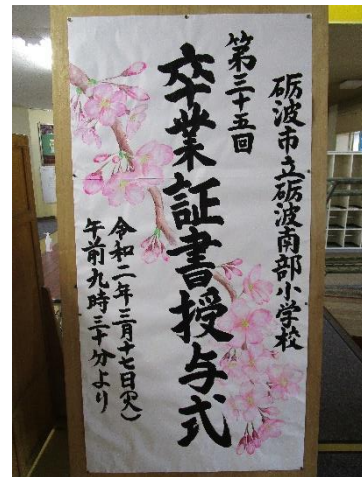 砺波市立砺波南部小学校
第三十五回
卒業証書授与式
令和二年三月十七日(火)
午前九時三十分より